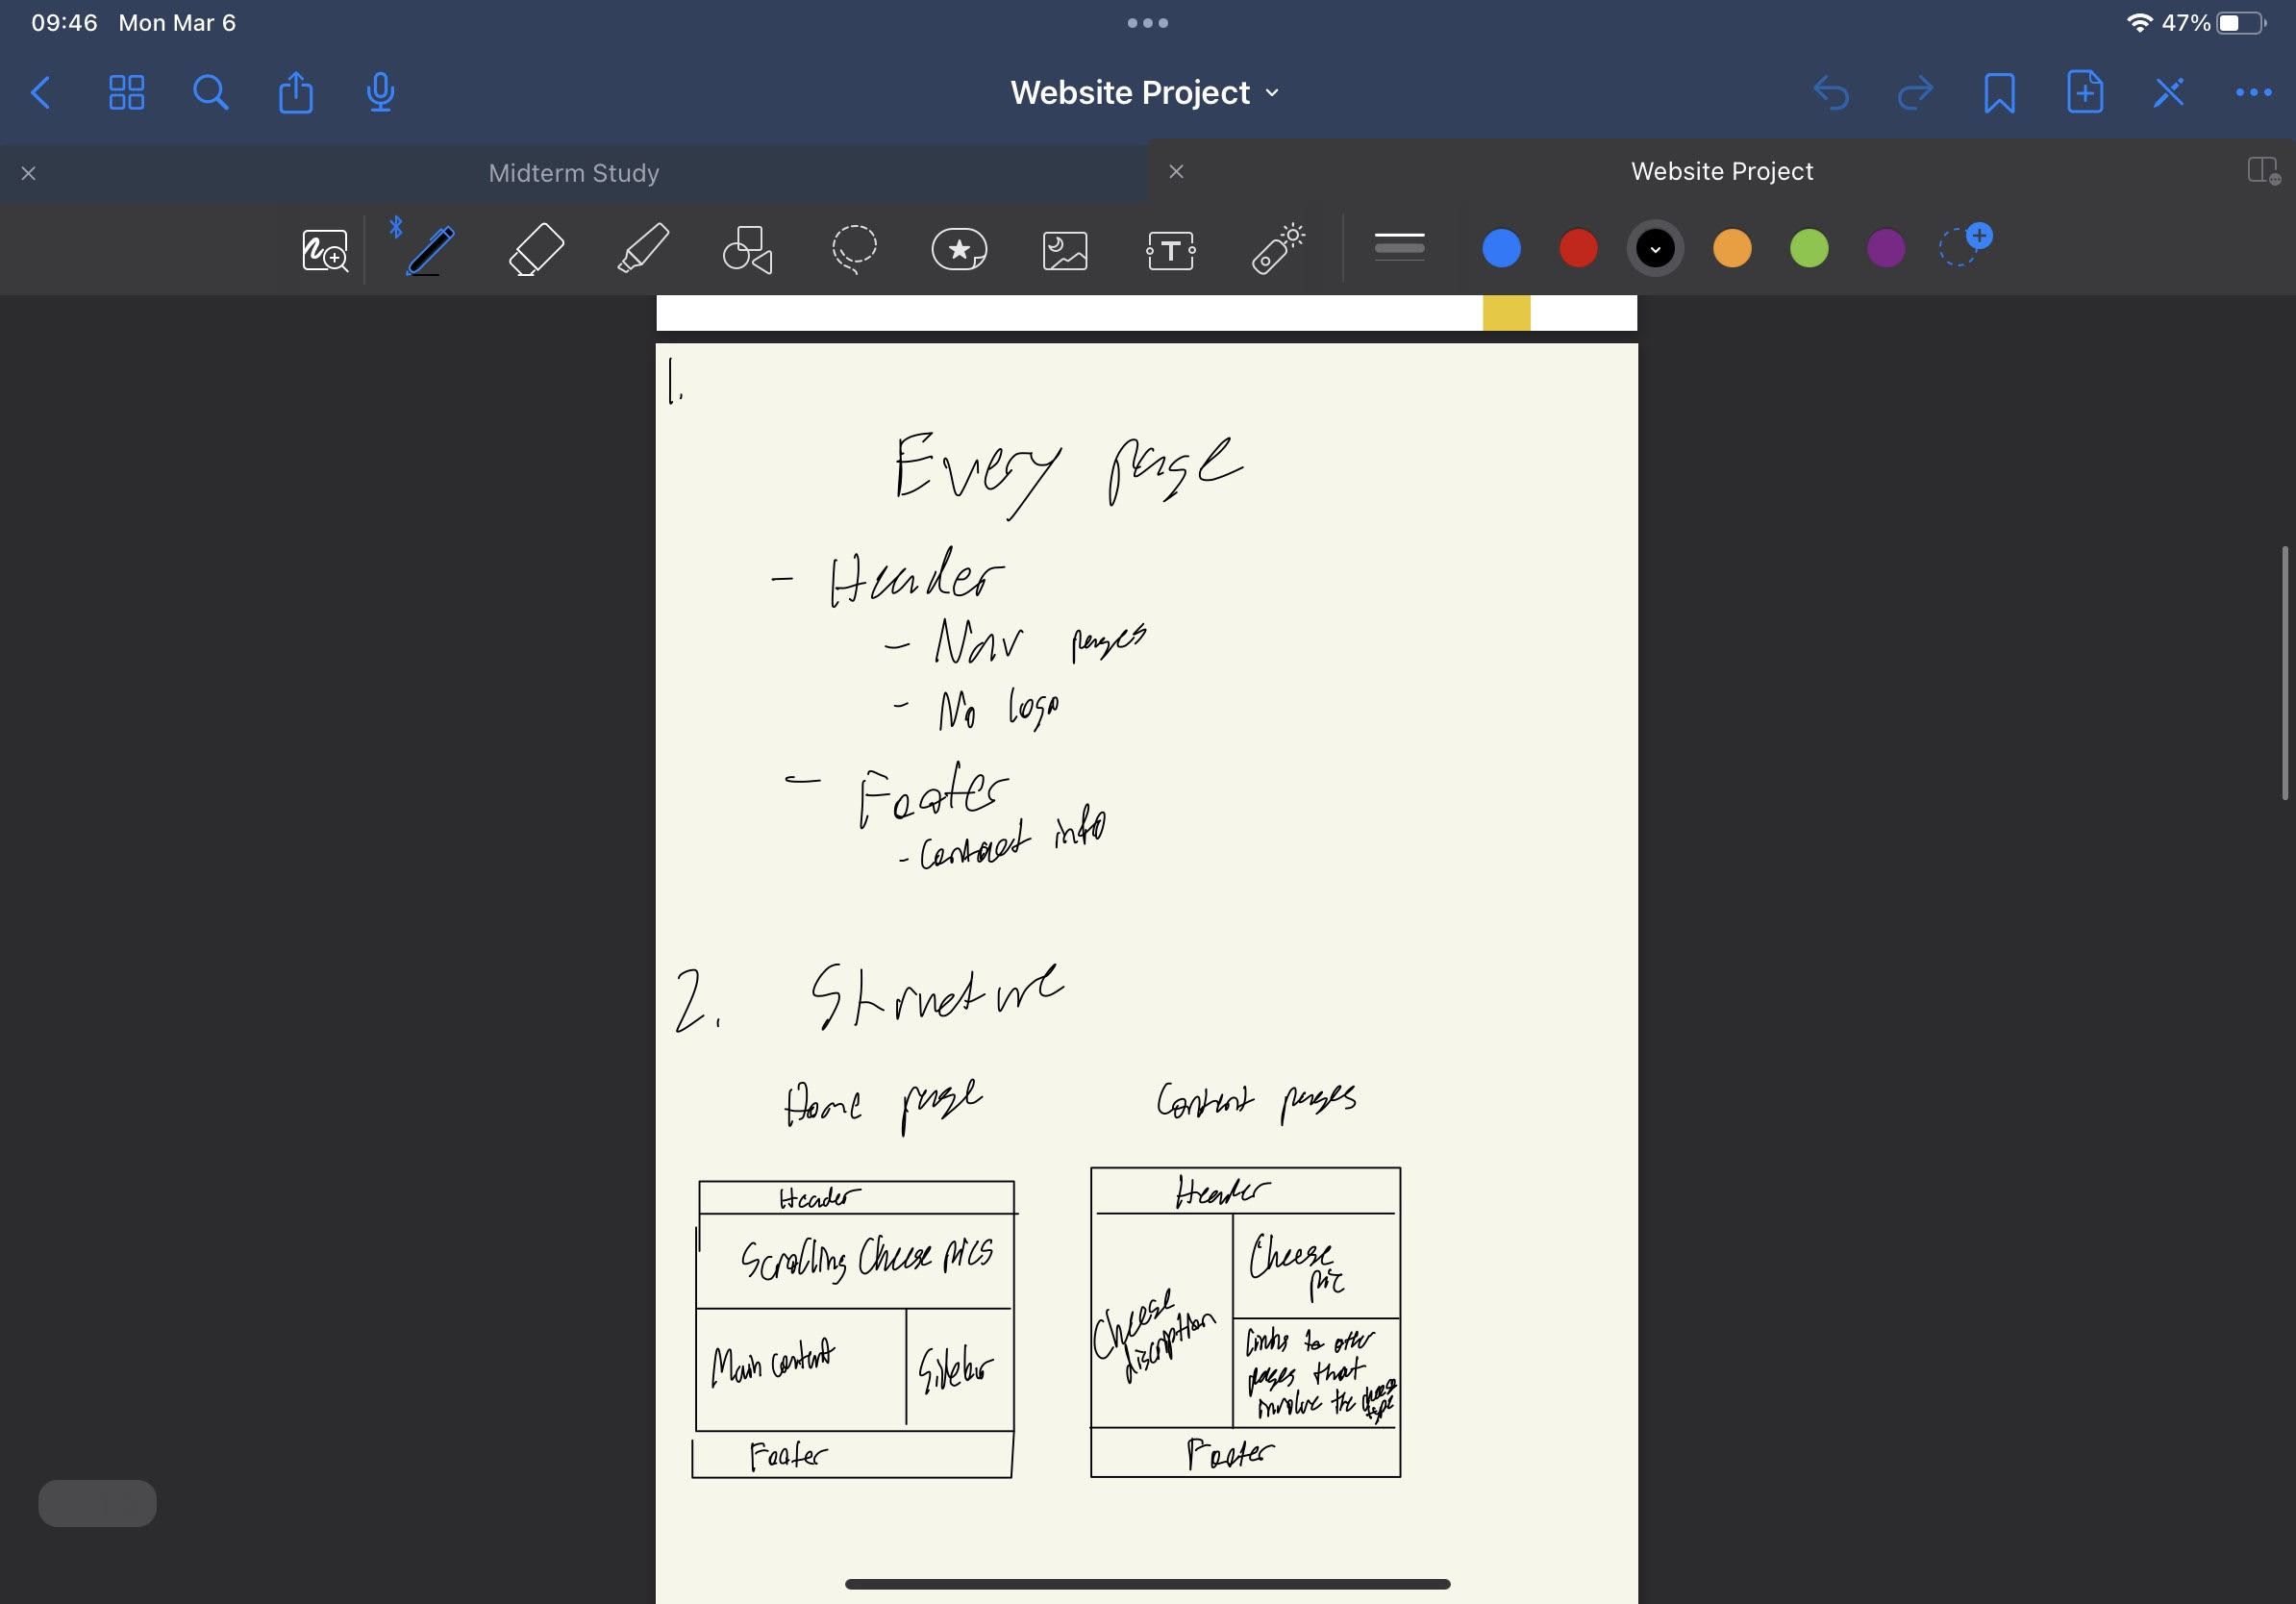 09:46 Mon Mar 6
47%
Website Project
Midterm Study
Website Project
1.
Every page
- Header
- Nav pages
- No logo
- Footer
- Contact info
2. Structure
Home page
Content pages
Header
Scrolling Cheese pics
Main content
Sidebar
Footer
Header
Cheese
discription
Cheese
pic
Links to other
pages that
involve the cheese
type
Footer